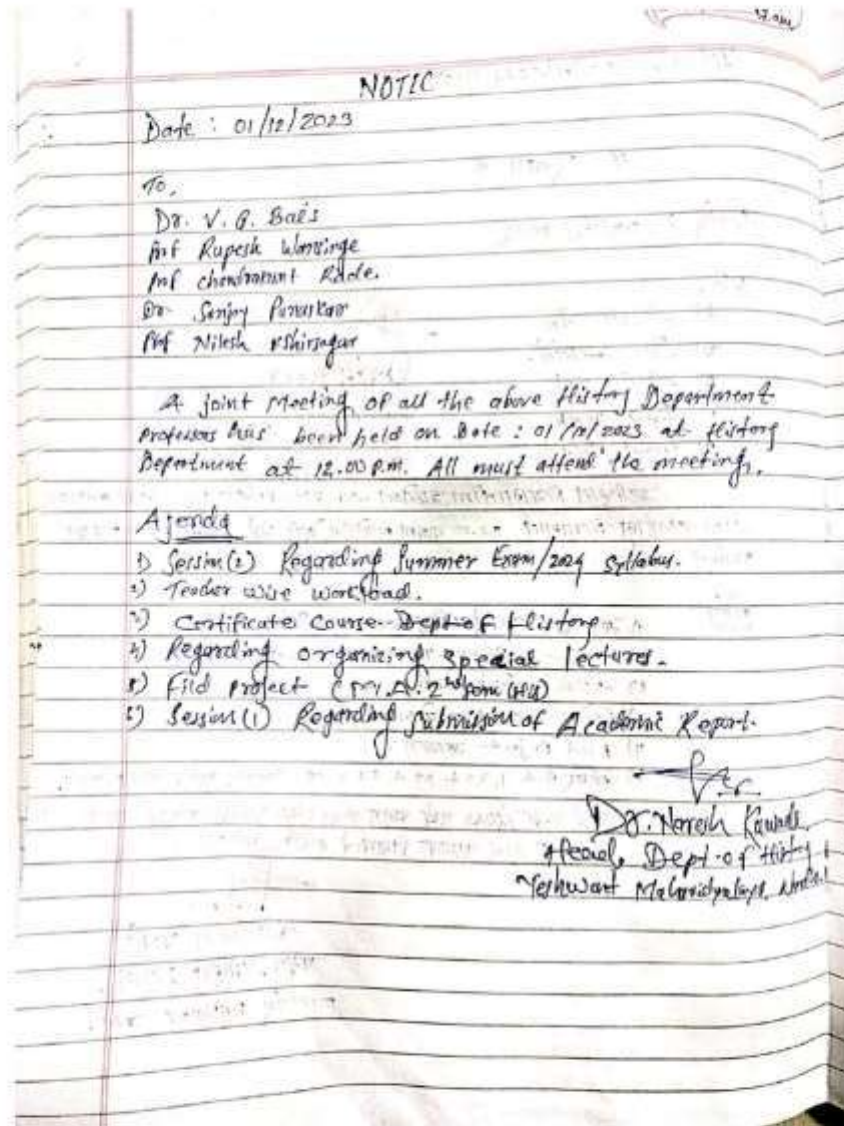 NOTIC
Date : 01/12/2023
To,
Dr. V. G. Bais
Prof Rupesh Wansinge
Prof chandrakant Rade.
Dr. Sanjay Punaskar
Prof Nilesh kshirsagar
A joint meeting of all the above History Department
Professors has been held on Date : 01/12/2023 at History
Department at 12.00 P.m. All must attend the meeting.
Agenda
1) Session(2) Regarding Summer Exam/2024 Syllabus.
2) Teacher wise workload.
3) Certificate Course Dept of History
4) Regarding organizing special lectures.
5) Fild project
6) Session(1) Regarding Submission of Academic Report.
Dr. Naresh Kawade
Head, Dept. of History
Yeshwant Mahavidyalaya,